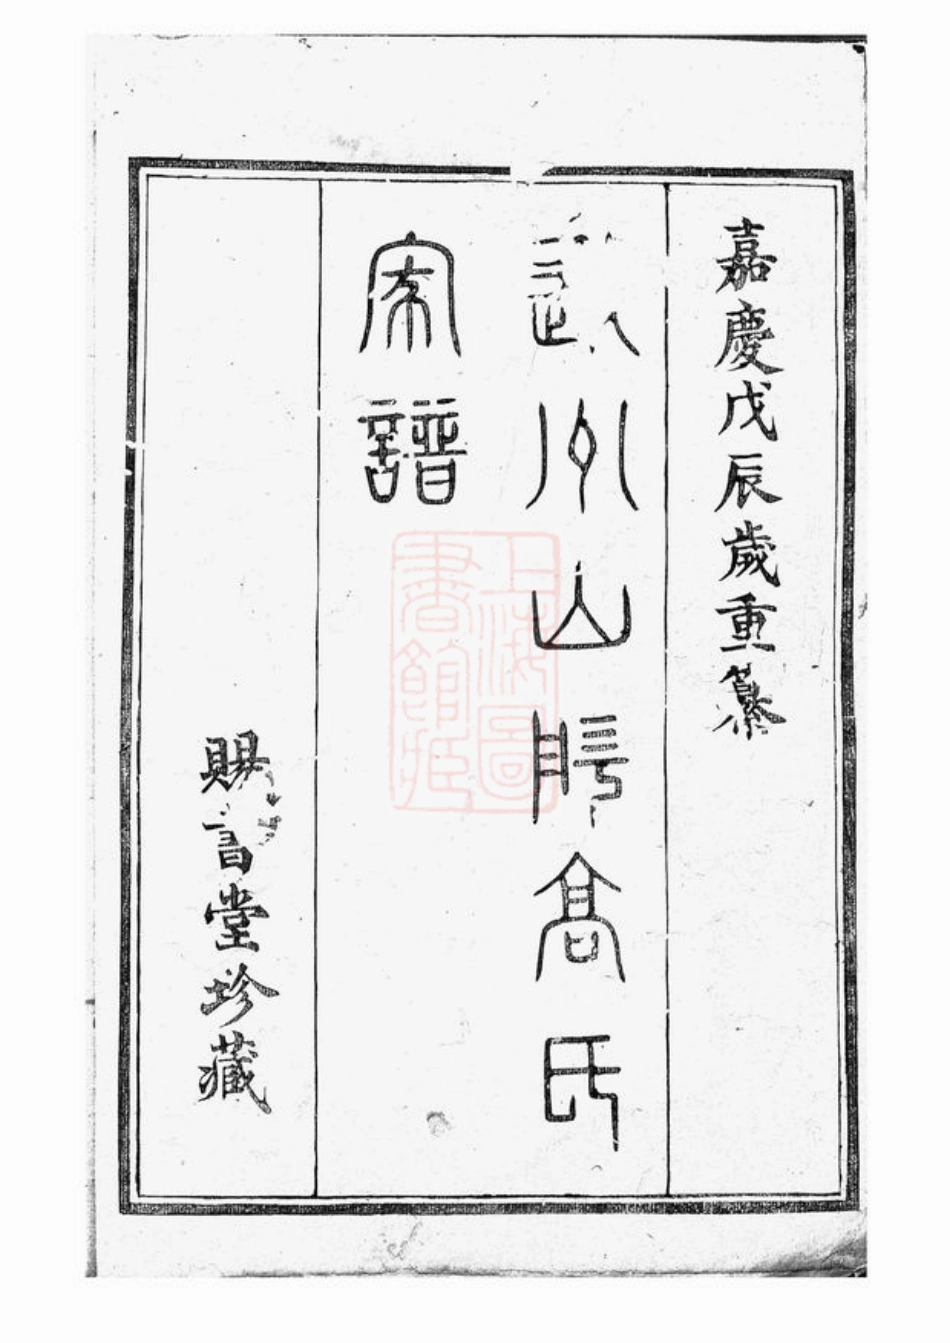 嘉慶戊辰歲重纂
山
高氏
家譜
賜書堂珍藏
上海圖書館藏